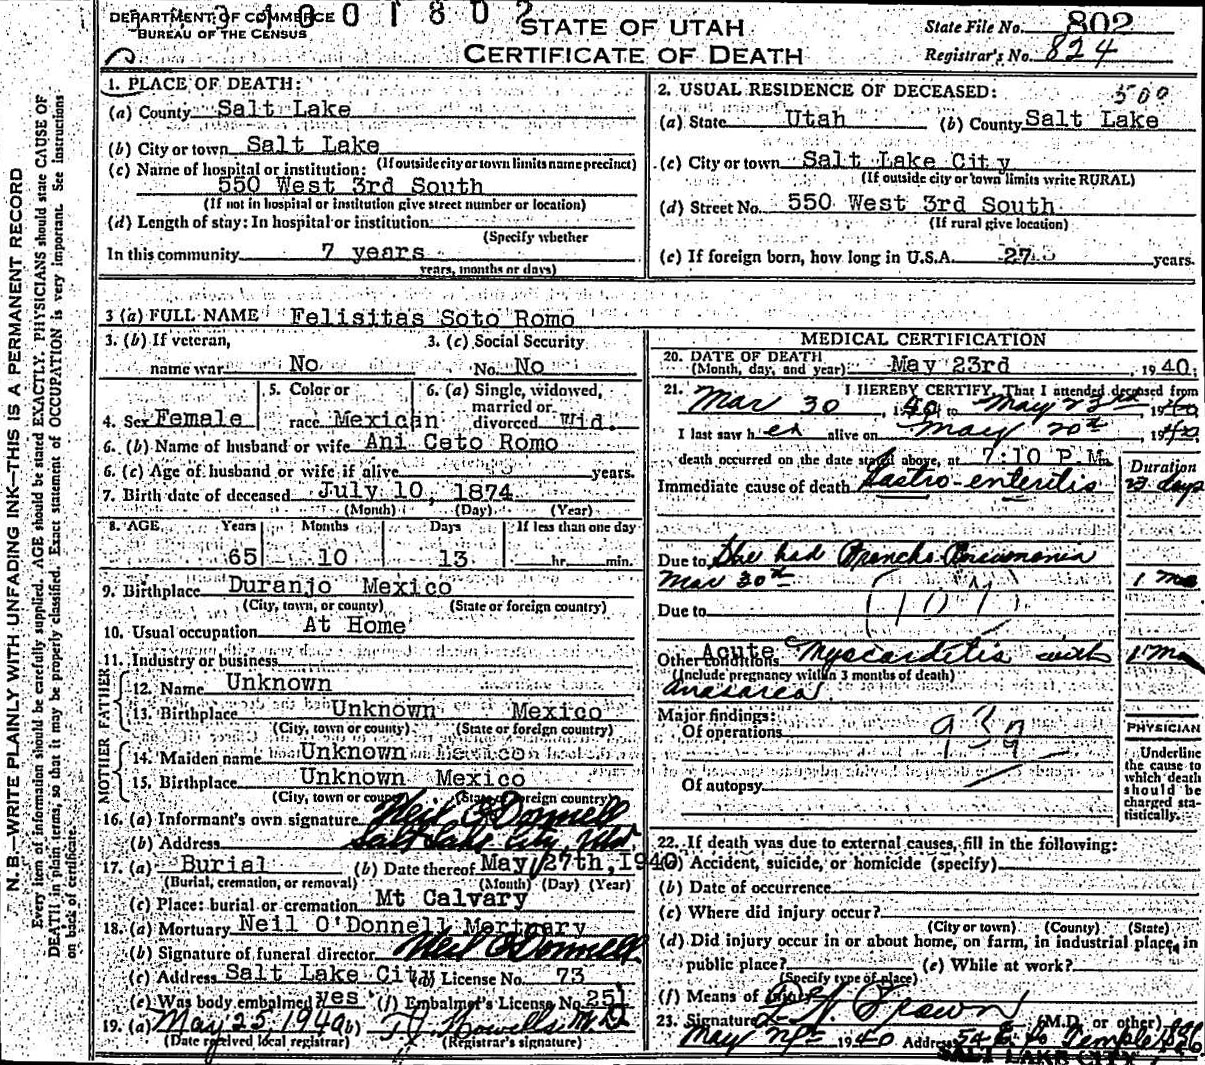 DEPARTMENT OF COMMERCE
BUREAU OF THE CENSUS
STATE OF UTAH
CERTIFICATE OF DEATH
State File No. 802
Registrar's No. 824
N. B.—WRITE PLAINLY WITH UNFADING INK—THIS IS A PERMANENT RECORD
Every item of information should be carefully supplied. AGE should be stated EXACTLY. PHYSICIANS should state CAUSE OF
DEATH in plain terms, so that it may be properly classified. Exact statement of OCCUPATION is very important. See instructions
on back of certificate.
1. PLACE OF DEATH:
(a) County Salt Lake
(b) City or town Salt Lake
(If outside city or town limits name precinct)
(c) Name of hospital or institution:
550 West 3rd South
(If not in hospital or institution give street number or location)
(d) Length of stay: In hospital or institution
(Specify whether
In this community 7 years
years, months or days)
2. USUAL RESIDENCE OF DECEASED: 500
(a) State Utah (b) County Salt Lake
(c) City or town Salt Lake City
(If outside city or town limits write RURAL)
(d) Street No. 550 West 3rd South
(If rural give location)
(e) If foreign born, how long in U.S.A. 27 years.
3 (a) FULL NAME Felisitas Soto Romo
3. (b) If veteran, 3. (c) Social Security
name war No No. No
4. Sex Female 5. Color or race Mexican 6. (a) Single, widowed, married or divorced Wid.
6. (b) Name of husband or wife Ani Ceto Romo
6. (c) Age of husband or wife if alive years.
7. Birth date of deceased July 10, 1874
(Month) (Day) (Year)
8. AGE Years Months Days If less than one day
65 10 13 hr. min.
9. Birthplace Duranjo Mexico
(City, town, or county) (State or foreign country)
10. Usual occupation At Home
11. Industry or business
FATHER
12. Name Unknown
13. Birthplace Unknown Mexico
(City, town or county) (State or foreign country)
MOTHER
14. Maiden name Unknown Mexico
15. Birthplace Unknown Mexico
(City, town or county) (State or foreign country)
16. (a) Informant's own signature Neil O'Donnell
(b) Address Salt Lake City, Utah
17. (a) Burial (b) Date thereof May 27th, 1940
(Burial, cremation, or removal) (Month) (Day) (Year)
(c) Place: burial or cremation Mt Calvary
18. (a) Mortuary Neil O'Donnell Mortuary
(b) Signature of funeral director Neil O'Donnell
(c) Address Salt Lake City (d) License No. 73
(e) Was body embalmed yes (f) Embalmer's License No. 251
19. (a) May 25, 1940 (b) T. J. Howells M.D.
(Date received local registrar) (Registrar's signature)
MEDICAL CERTIFICATION
20. DATE OF DEATH
(Month, day, and year) May 23rd, 1940;
21. I HEREBY CERTIFY, That I attended deceased from
Mar 30, 1940 to May 23rd 1940
I last saw her alive on May 20th, 1940
death occurred on the date stated above, at 7:10 P.M.
Duration
Immediate cause of death Gastro-enteritis 23 days
Due to She had Broncho Pneumonia
Mar 30th 1 Mo
(107)
Due to
Other conditions Acute Myocarditis with 1 Mo
(Include pregnancy within 3 months of death)
anasarca
Major findings:
Of operations
Of autopsy
PHYSICIAN
Underline
the cause to
which death
should be
charged sta-
tistically.
22. If death was due to external causes, fill in the following:
(a) Accident, suicide, or homicide (specify)
(b) Date of occurrence
(c) Where did injury occur?
(City or town) (County) (State)
(d) Did injury occur in or about home, on farm, in industrial place, in
public place? (e) While at work?
(Specify type of place)
(f) Means of injury
23. Signature Brown (M.D. or other)
May 1940 Address 54 E. So Temple
SALT LAKE CITY